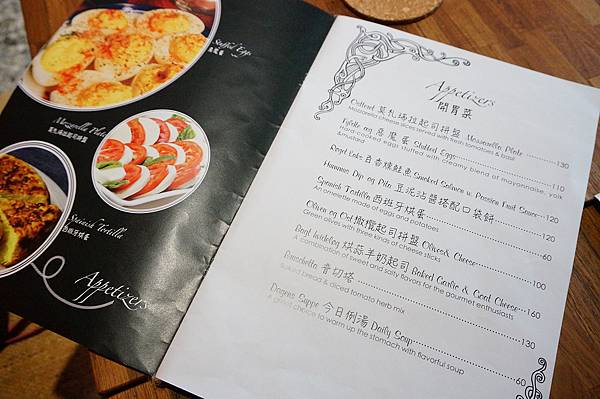 Stuffed Eggs
惡魔蛋
Mozzarella Plate
莫札瑞拉起司拼盤
Spanish Tortilla
西班牙烘蛋
Appetizers
Appetizers
開胃菜
莫札瑞拉起司拼盤 Mozzarella Plate 130
Mozzarella cheese slices served with fresh tomatoes & basil
惡魔蛋 Stuffed Eggs 110
Hard-cooked eggs stuffed with creamy blend of mayonnaise, yolk
&mustard
自香燻鮭魚 Smoked Salmon w. Passion Fruit Sauce 120
Hummus Dip og Pita 豆泥沾醬搭配口袋餅 120
Spanish Tortilla 西班牙烘蛋 60
An omelette made of eggs and potatoes
Oliven og Ost 橄欖起司拼盤 Olives& Cheese 100
Green olives with three kinds of cheese sticks
烘蒜羊奶起司 Baked Garlic & Goat Cheese 160
A combination of sweet and salty flavors for the gourmet enthusiasts
普切塔 130
bread & diced tomato herb mix
Dagens Suppe 今日例湯 Daily Soup 60
A great choice to warm up the stomach with flavorful soup